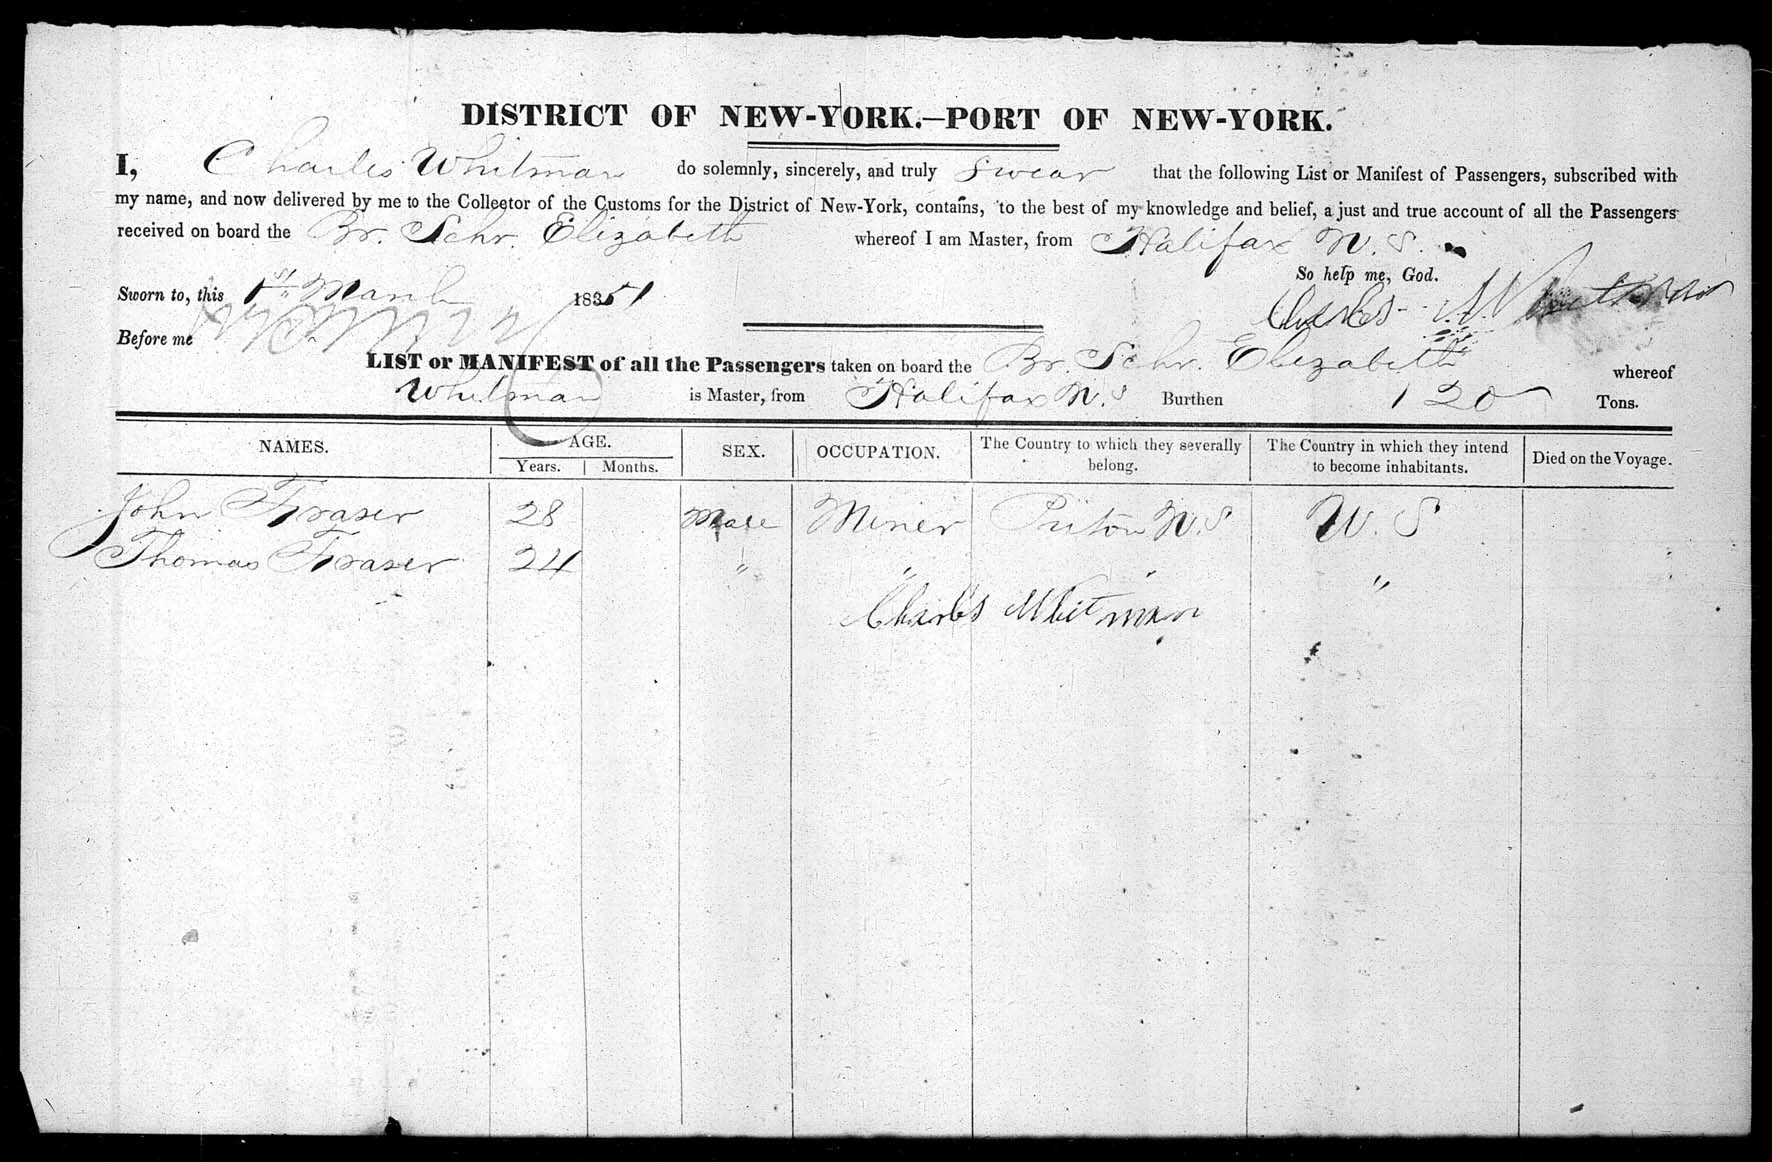 DISTRICT OF NEW-YORK.—PORT OF NEW-YORK.
I, Charles Whitman do solemnly, sincerely, and truly Swear that the following List or Manifest of Passengers, subscribed with
my name, and now delivered by me to the Collector of the Customs for the District of New-York, contains, to the best of my knowledge and belief, a just and true account of all the Passengers
received on board the Br. Schr. Elizabeth whereof I am Master, from Halifax N.S.
So help me, God.
Sworn to, this 1st March 1851 Charles Whitman
Before me
LIST or MANIFEST of all the Passengers taken on board the Br. Schr. Elizabeth whereof
Whitman is Master, from Halifax N.S Burthen 120 Tons.
NAMES. AGE. SEX. OCCUPATION. The Country to which they severally belong. The Country in which they intend to become inhabitants. Died on the Voyage.
Years. Months.
John Fraser 28 Male Miner N.S U.S
Thomas Fraser 24 " " " "
Charles Whitman